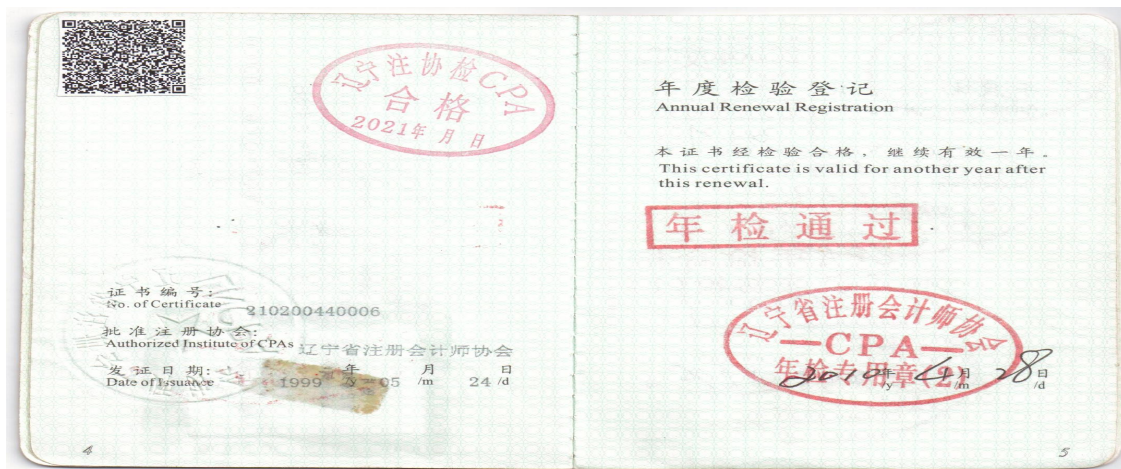 辽宁注协检CPA
合格
2021年 月 日
证书编号:
No. of Certificate
210200440006
批准注册协会:
Authorized Institute of CPAs
辽宁省注册会计师协会
发证日期: 年 月 日
Date of Issuance 1999 /y 05 /m 24 /d
4
年度检验登记
Annual Renewal Registration
本证书经检验合格，继续有效一年。
This certificate is valid for another year after
this renewal.
年检通过
辽宁省注册会计师协会
CPA
年检专用章(2)
2010年 4月 28日
/y /m /d
5